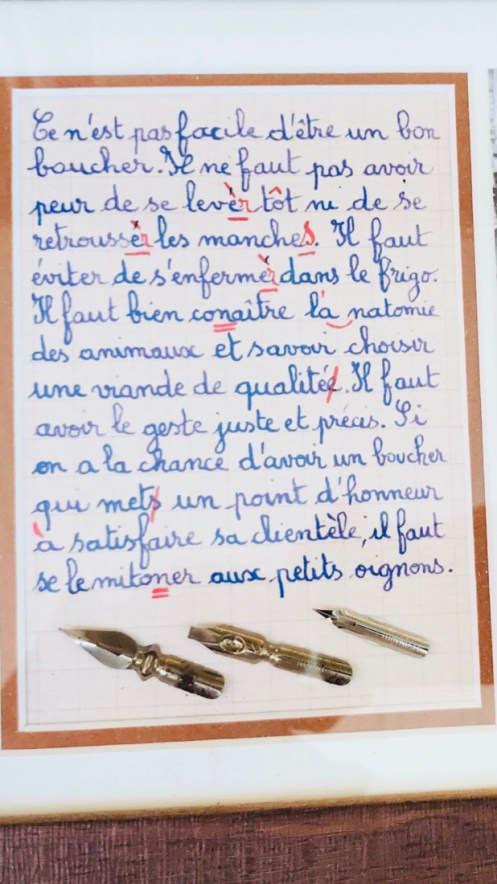 Ce n'est pas facile d'être un bon
boucher. Il ne faut pas avoir
peur de se levèr tôt ni de se
retroussèr les manches. Il faut
éviter de s'enfermèr dans le frigo.
Il faut bien conaître l'a natomie
des animaux et savoir choisir
une viande de qualitée. Il faut
avoir le geste juste et précis. Si
on a la chance d'avoir un boucher
qui mets un point d'honneur
à satisfaire sa clientèle, il faut
se le mitoner aux petits oignons.